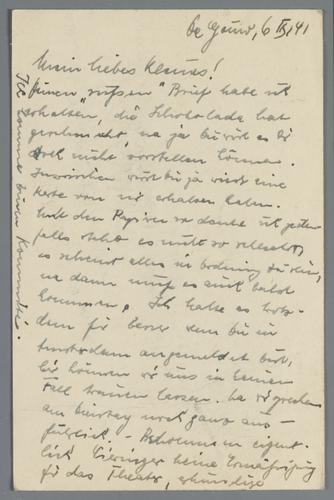 6 IX 41
Mein liebes Kleines!
Deinen „süssen" Brief habe ich
erhalten, die Schokolade hat
geschmeckt, na ja Du wirst es Dir
doch nicht vorstellen können.
Inzwischen wirst Du ja wieder eine
Karte von mir erhalten haben.
Mit den Papieren
falls steht es nicht so schlecht,
es scheint alles in Ordnung zu sein,
na dann muss es auch bald
kommen. Ich halte es trotz-
dem für besser wenn Du in
Amsterdam angemeldet bist,
hier können wir uns in keinem
Fall trauen lassen. Da wir sprechen
am Sonntag noch ganz aus-
führlich. – Bekommen eigent-
lich keine Ermäßigung
für das Theater,
Ich komme Kommité.